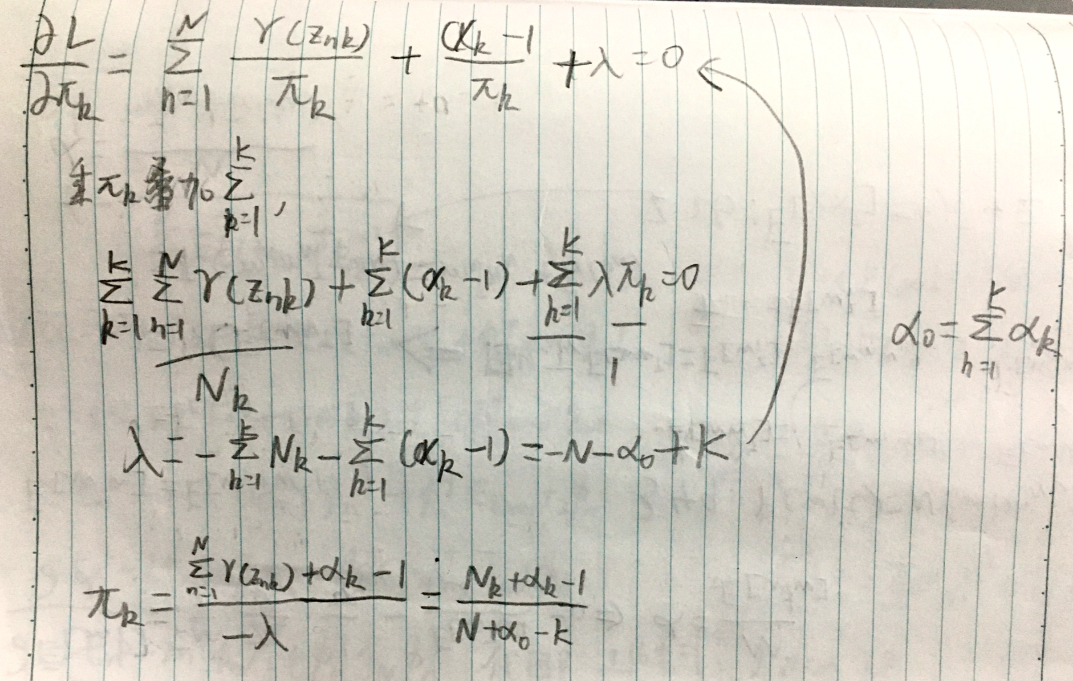 ∂L/∂π_k = Σ_{n=1}^{N} γ(z_{nk})/π_k + (α_k-1)/π_k + λ = 0
π_k Σ_{k=1}^{K},
Σ_{k=1}^{K} Σ_{n=1}^{N} γ(z_{nk}) + Σ_{k=1}^{K} (α_k-1) + Σ_{k=1}^{K} λπ_k = 0
N_k
1
α_0 = Σ_{k=1}^{K} α_k
λ = -Σ_{k=1}^{K} N_k - Σ_{k=1}^{K} (α_k-1) = -N-α_0+K
π_k = (Σ_{n=1}^{N} γ(z_{nk}) + α_k - 1)/(-λ) = (N_k+α_k-1)/(N+α_0-K)